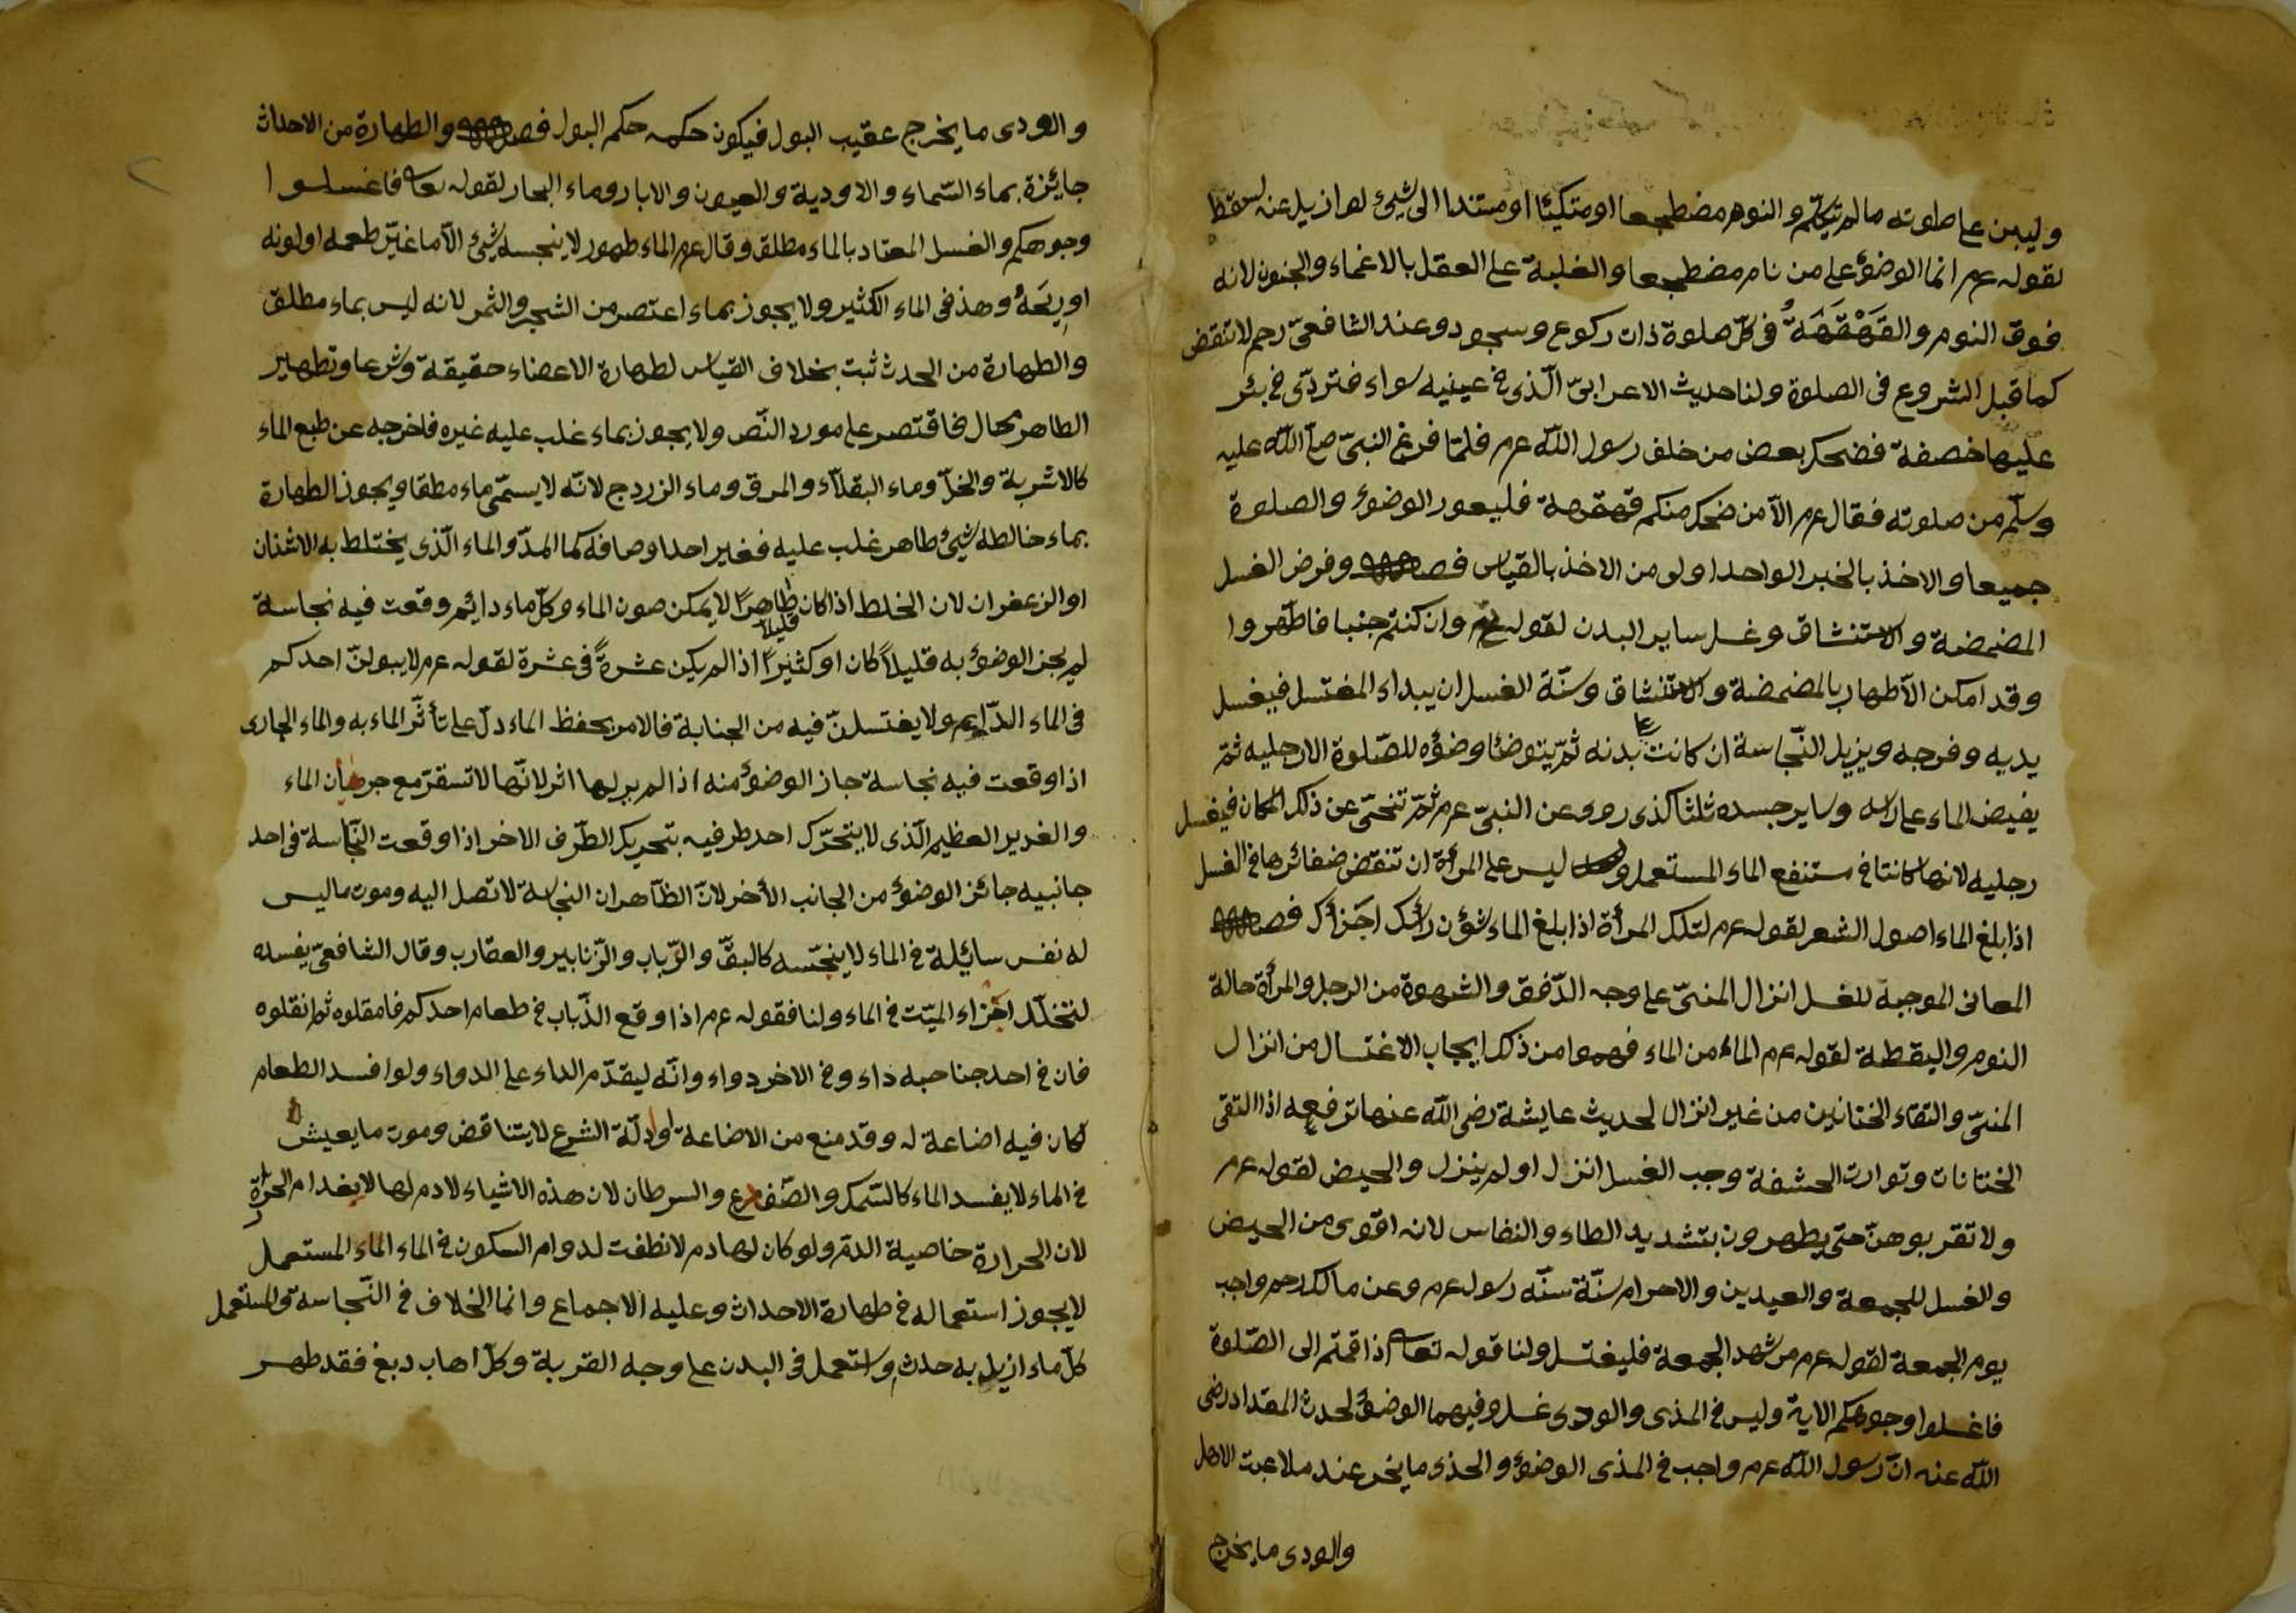 وليبن على صلوته ما لم يتكلّم والنوم مضطجعا او متكيئا او مستندا الى شيئ لو ازيل عنه لسقط
لقوله عم انما الوضوء على من نام مضطجعا والغلبة على العقل بالاغماء والجنون لانه
فوق النوم والقَهْقَهَةُ فى كلّ صلوة ذات ركوع وسجود وعند الشافعىّ رحم لا تنقض
كما قبل الشروع فى الصلوة ولنا حديث الاعرابىّ الّذى فى عينيه سواء فتردّى فى بئر
عليها خصفة فضحك بعض من خلف رسول اللّه عم فلمّا فرغ النبىّ صلّى اللّه عليه
وسلّم من صلوته فقال عم الآ من ضحك منكم قهقهة فليعود الوضوء والصلوة
جميعا والاخذ بالخبر الواحد اولى من الاخذ بالقياس فصل وفرض الغسل
المضمضة والاستنشاق وغسل ساير البدن لقوله وان كنتم جنبا فاطّهروا
وقد امكن الاطهار بالمضمضة والاستنشاق وسنّة الغسل ان يبداء المغتسل فيغسل
يديه وفرجه ويزيل النّجاسة ان كانت على بدنه ثمّ يتوضئا وضؤه للصّلوة الا رجليه ثمّ
يفيض الماء على راسه وساير جسده ثلثا كذى روى عن النبىّ عم ثمّ تنحّى عن ذلك المكان فيغسل
رجليه لانها كانتا فى مستنقع الماء المستعمل وليس على المرأة ان تنقض ضفائرها فى الغسل
اذا بلغ الماء اصول الشعر لقوله عم لتلك المرأة اذا بلغ الماء شؤن رأسك اجزأك فصل
المعانى الموجبة للغسل انزال المنىّ على وجه الدّفق والشهوة من الرجل والمرأة حالة
النوم واليقظة لقوله عم الماء من الماء فهموا من ذلك ايجاب الاغتسال من انزال
المنىّ والتقاء الختانين من غير انزال لحديث عايشة رضى اللّه عنها ترفعه اذا التقى
الختانان وتوارت الحشفة وجب الغسل انزل او لم ينزل والحيض لقوله عم
ولا تقربوهنّ حتى يطهرون بتشديد الطاء والنفاس لانه اقوى من الحيض
والغسل للجمعة والعيدين والاحرام سنّة سنّه رسول عم وعن مالك رحم واجب
يوم الجمعة لقوله عم من شهد الجمعة فليغتسل ولنا قوله تعا اذا قمتم الى الصّلوة
فاغسلوا وجوهكم الاية وليس فى المذى والودى غسل وفيهما الوضؤ لحدث المقداد رضى
اللّه عنه انّ رسول اللّه عم واجب فى المذى الوضؤ والمذى ما يخرج عند ملاعبت الاهل
والودى ما يخرج
والودى ما يخرج عقيب البول فيكون حكمه حكم البول فصل والطهارة من الاحداث
جايزة بماء السّماء والاودية والعيون والابار وماء البحار لقوله تعا فاغسلوا
وجوهكم والغسل المعتاد بالماء مطلق وقال عم الماء طهور لا ينجسه شيئ الّا ما غيّر طعمه او لونه
او ريحَهُ وهذ فى الماء الكثير ولا يجوز بماء اعتصر من الشجر والثمر لانه ليس بماء مطلق
والطهارة من الحدث ثبت بخلاف القياس لطهارة الاعضاء حقيقة وشرعا وتطهير
الطاهر محال فاقتصر على مورد النّص ولا يجوز بماء غلب عليه غيره فاخرجه عن طبع الماء
كالاشربة والخلّ وماء البقلاء والمرق وماء الزردج لانّه لا يسمّى ماء مطقا ويجوز الطهارة
بماء خالطه شيئ طاهر غلب عليه فغير احد اوصافه كما المدّ والماء الّذى يختلط به الاشنان
او الزعفران لان الخلط اذا كان طاهرًا قليلا لا يمكن صون الماء وكلّ ماء دايئم وقعت فيه نجاسة
لم يجز الوضوء به قليلاً كان او كثيرًا اذا لم يكن عشرةً فى عشرة لقوله عم لا يبولنّ احدكم
فى الماء الدّايم ولا يغتسلنّ فيه من الجنابة فالامر بحفظ الماء دلّ على تأثّر الماء به والماء الجارى
اذا وقعت فيه نجاسة جاز الوضوء منه اذا لم ير لها اثر لانّها لا تسقرّ مع جريان الماء
والغدير العظيم الّذى لا يتحرّك احد طرفيه بتحريك الطّرف الاخر اذا وقعت النّجاسة فى احد
جانبيه جائز الوضوء من الجانب الأخر لانّ الظّاهر ان النجاسة لا تصل اليه وموت ما ليس
له نفس سايئلة فى الماء لا ينجّسه كالبقّ والزّباب والزّنابير والعقارب وقال الشافعىّ يفسده
لتخلّل اجزاء الميّت فى الماء ولنا فقوله عم اذا وقع الذّباب فى طعام احدكم فامقلوه ثم انقلوه
فان فى احد جناحبه داء وفى الاخر دواء وانّه ليقدّم الداء على الدواء ولو افسد الطعام
لكان فيه اضاعة له وقد منع من الاضاعة وادلّة الشرع لا يتناقض وموت ما يعيش
فى الماء لا يفسد الماء كالسّمك والضّفدع والسرطان لان هذه الاشياء لا دم لها لانغدام الحرارة
لان الحرارة خاصية الدّم ولو كان لها دم لانطفت لدوام السكون فى الماء الماء المستعمل
لا يجوز استعماله فى طهارة الاحداث وعليه الاجماع وانما الخلاف فى النّجاسة والمستعمل
كلّ ماء ازيل به حدث واستعمل فى البدن على وجه القربة وكلّ اهاب دبغ فقد طهر